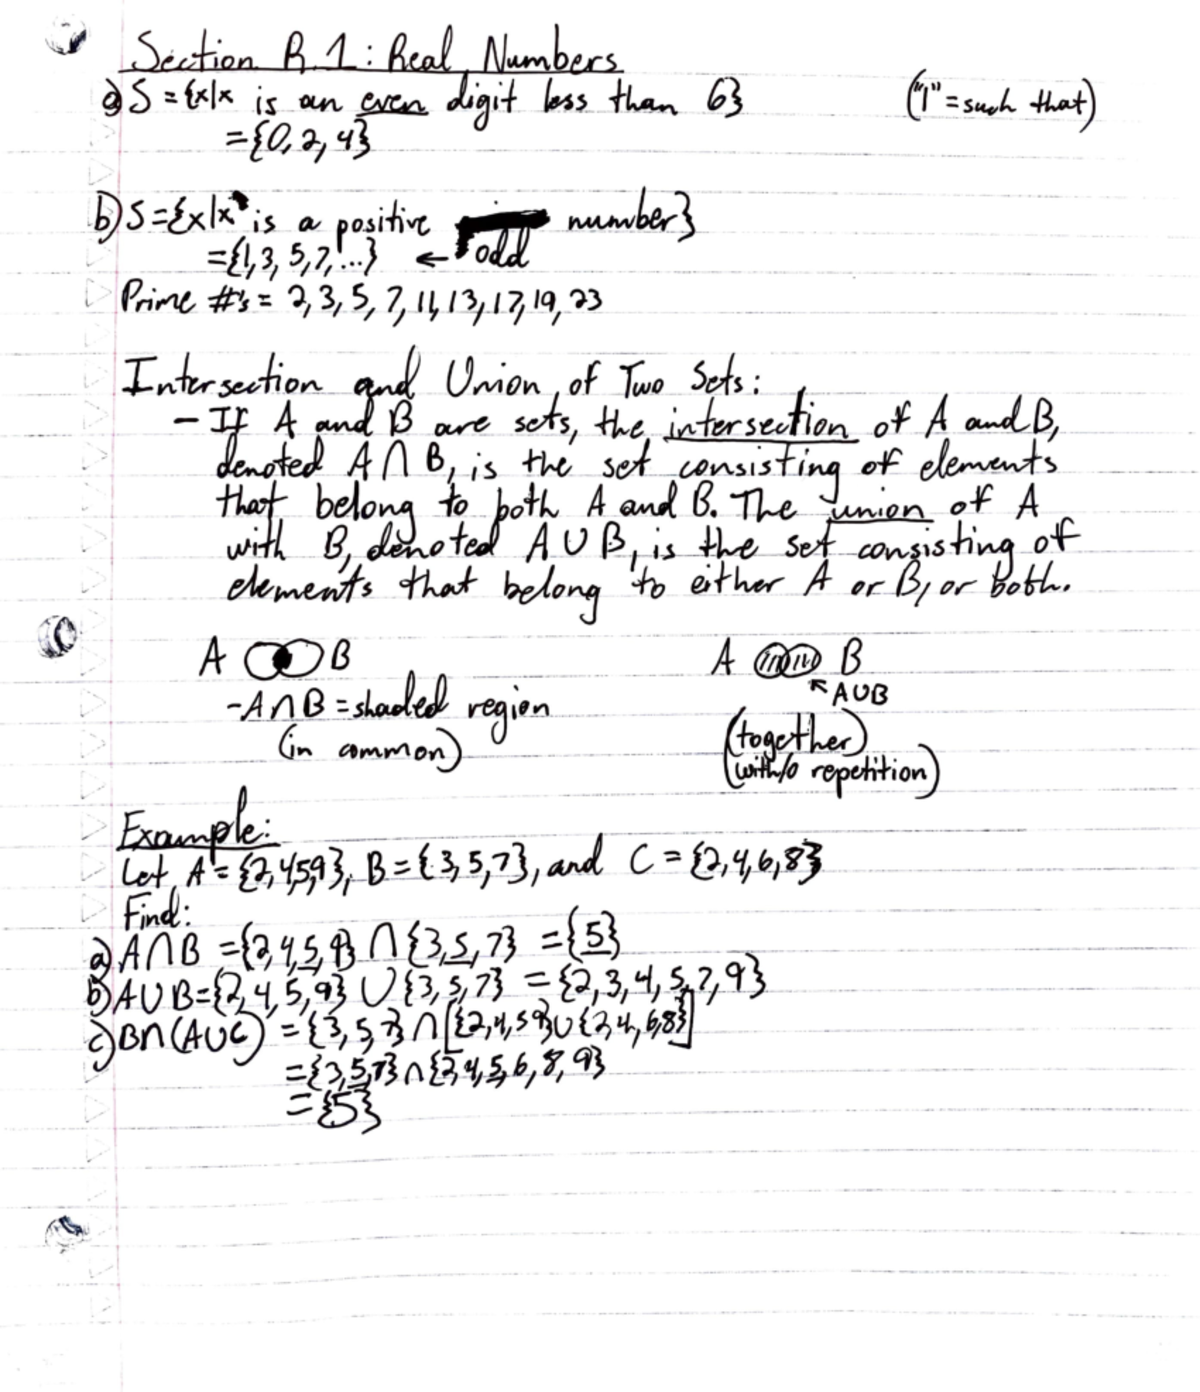 Section R.1: Real Numbers
a) S = {x|x is an even digit less than 6} ("|" = such that)
= {0, 2, 4}
b) S = {x|x is a positive number}
= {1, 3, 5, 7, ...} ← odd
Prime #'s = 2, 3, 5, 7, 11, 13, 17, 19, 23
Intersection and Union of Two Sets:
- If A and B are sets, the intersection of A and B,
denoted A ∩ B, is the set consisting of elements
that belong to both A and B. The union of A
with B, denoted A ∪ B, is the set consisting of
elements that belong to either A or B, or both.
A B A B
- A ∩ B = shaded region
(in common)
A∪B
(together)
(with/o repetition)
Example:
Let A = {2,4,5,9}, B = {3,5,7}, and C = {2,4,6,8}
Find:
a) A∩B = {2,4,5,9} ∩ {3,5,7} = {5}
b) A∪B = {2,4,5,9} ∪ {3,5,7} = {2,3,4,5,7,9}
c) B∩(A∪C) = {3,5,7} ∩ [{2,4,5,9}∪{2,4,6,8}]
= {3,5,7} ∩ {2,4,5,6,8,9}
= {5}